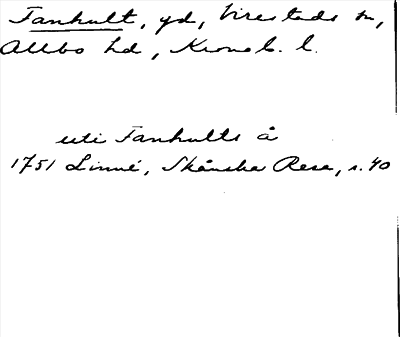 Fanhult, gd, Virestads sn,
Allbo hd, Kronob. l.
uti Fanhults å
1751 Linné, Skånska Resa, s. 40